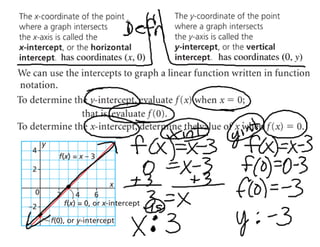 The x-coordinate of the point
where a graph intersects
the x-axis is called the
x-intercept, or the horizontal
intercept. has coordinates (x, 0)
Defn
The y-coordinate of the point
where a graph intersects
the y-axis is called the
y-intercept, or the vertical
intercept. has coordinates (0, y)
We can use the intercepts to graph a linear function written in function
notation.
To determine the y-intercept, evaluate f(x) when x = 0;
that is evaluate f(0).
To determine the x-intercept, determine the value of x when f(x) = 0.
y
4
2
0
-2
2
4
6
x
f(x) = x – 3
f(x) = 0, or x-intercept
f(0), or y-intercept
x int
f(x)=x-3
0=x-3
+3 +3
3=x
x:3
y int
f(x)=x-3
f(0)=0-3
f(0)=-3
y:-3